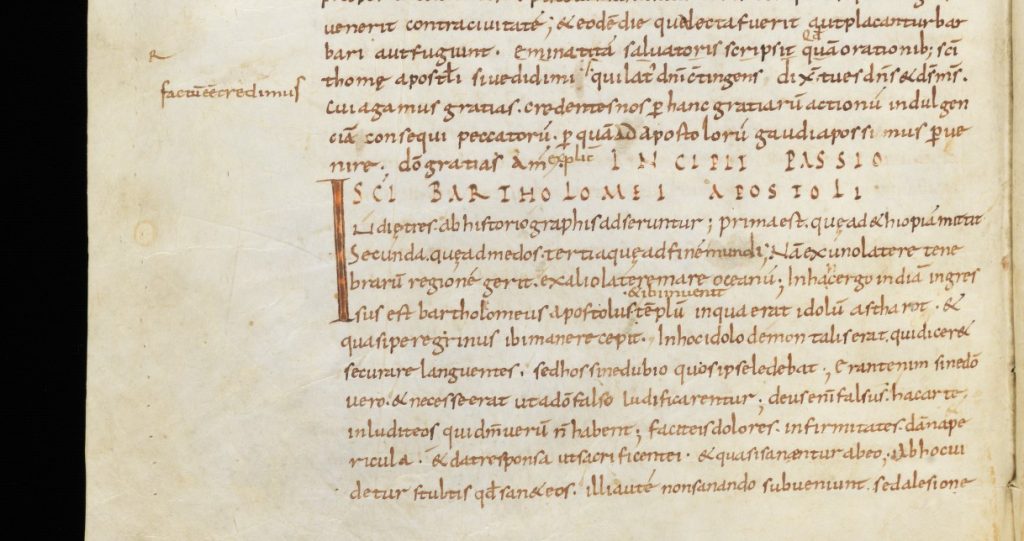 venerit contra civitatē; & eodē die qua lecta fuerit aut placantur bar
bari aut fugiunt. eminatitā salvatoris scripsit quā orationib; sci
thomę apostłi sive didimi qui lat' dni cōtingens di xp̄i tu es dn̄s & ds̄ ms̄.
R
factū eē credimus
cui agamus gratias. credentes nos p hanc gratiarū actionū indulgen
ciā consequi peccatorū. p quā ad apostolorū gaudia possimus pve
nire; dō gratias am̄ explic̄ INCIPIT PASSIO
SCI BARTHOLOMEI APOSTOLI
Indię tres. ab historiographis adseruntur; prima est. quę ad ęthiopiā mittit
Secunda. quę ad medos. tertia quę ad finē mundi; Nā ex uno latere tene
brarū regionē gerit. ex alio latere mare oceanū; In hac ergo indiā ingres
& ibi invenit
sus est bartholomeus apostolus tēplū in qua erat idolū astharot. &
quasi peregrinus ibi manere cepit. In hoc idolo demon talis erat. qui dicer&
se curare languentes. sed hos sine dubio quos ipse ledebat; Erant enim sine dō
vero. & necesse erat ut a dō falso ludificarentur; deus enī falsus. hac arte.
inludit eos qui dm̄ verū n̄ habent; facit eis dolores. infirmitates. dāna pe
ricula. & dat responsa ut sacrificent ei. & quasi sanentur ab eo; Ab hoc vi
detur stultis qd̄ san& eos. illi autē non sanando subveniunt. sed a lesione